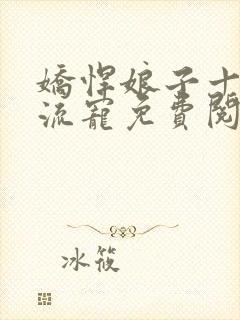 嬌悍娘子十
流寵免費閱
冰筱